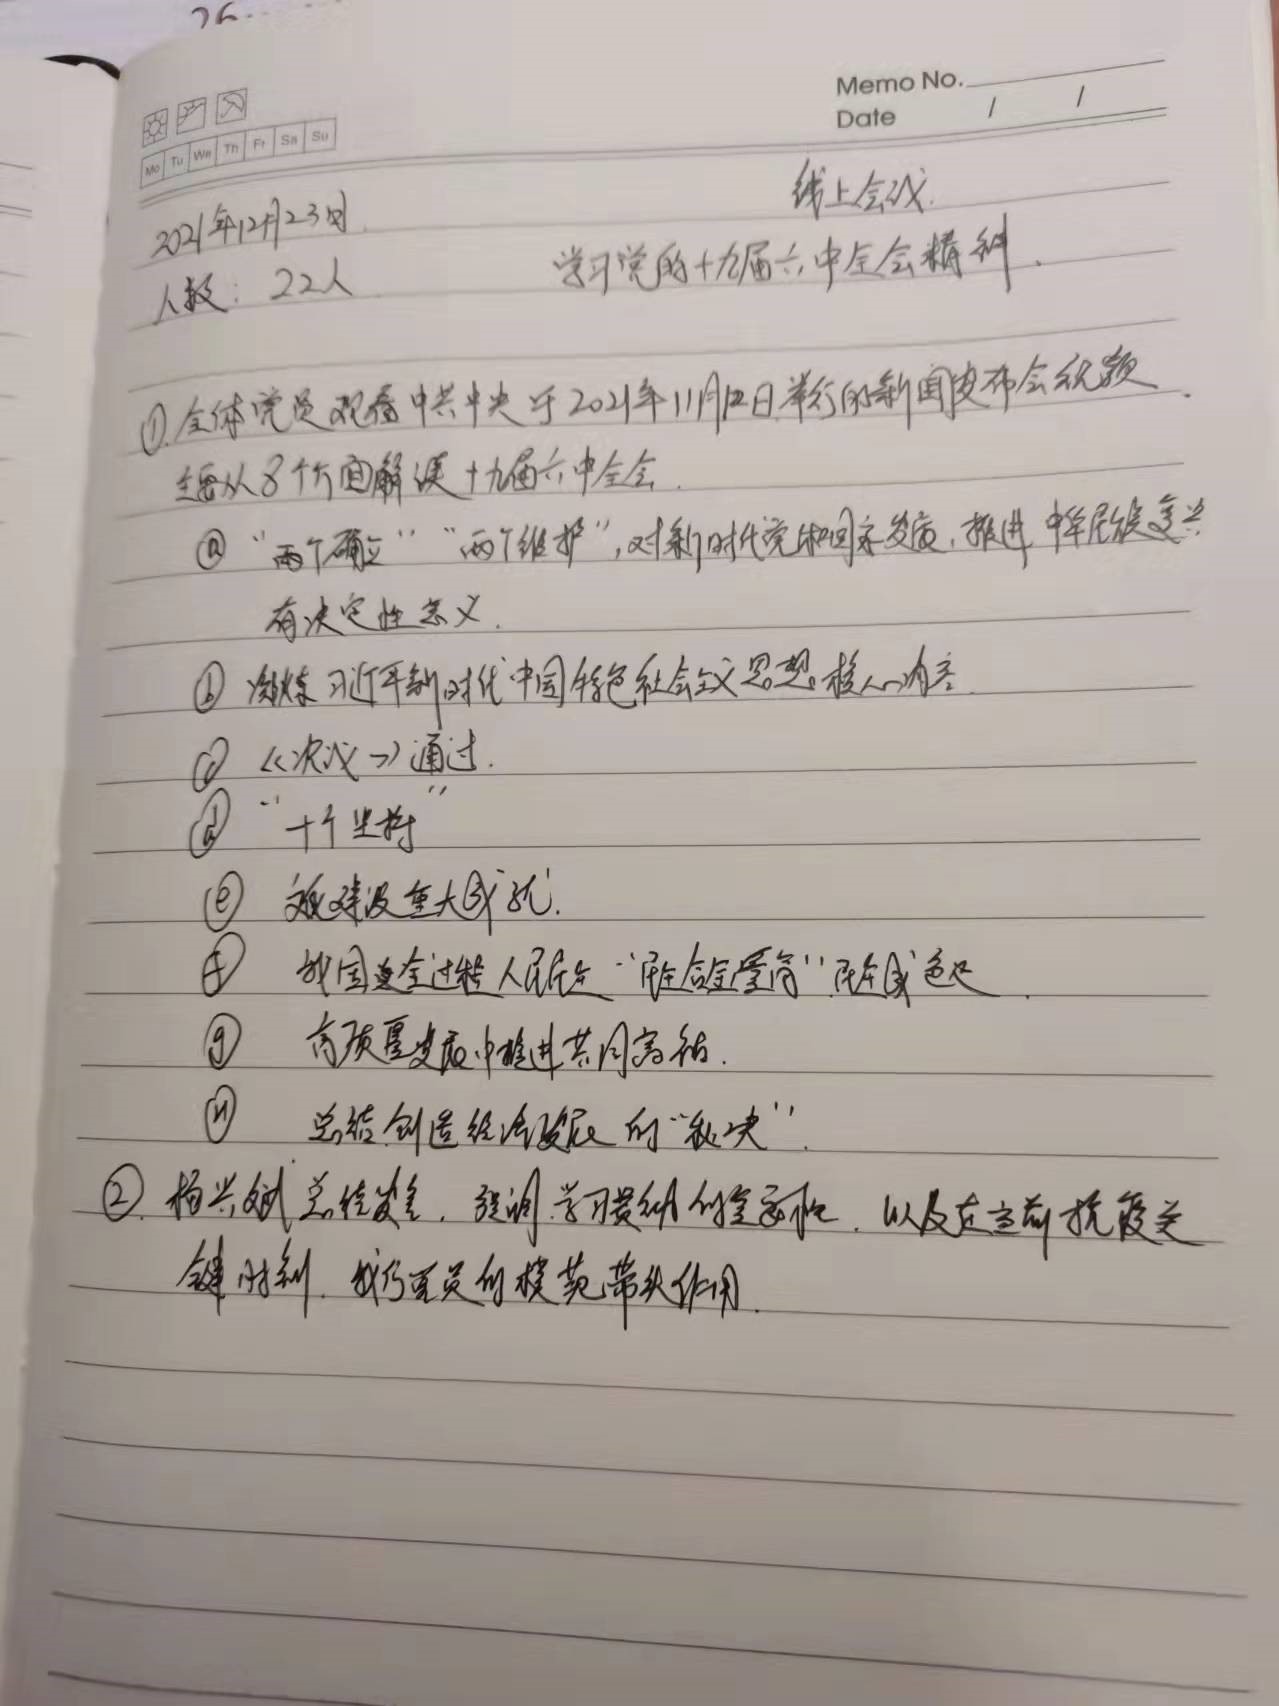 Memo No.
Date / /
Mo Tu We Th Fr Sa Su
2021年12月23日
线上会议.
人数: 22人
学习党的十九届六中全会精神.
①.全体党员观看中共中央于2021年11月12日举行的新闻发布会视频.
主要从8个方面解读十九届六中全会.
ⓐ "两个确立" "两个维护",对新时代党和国家发展,推进中华民族复兴
有决定性意义.
ⓑ 凝炼习近平新时代中国特色社会主义思想核心内容.
ⓒ 《决议》通过.
ⓓ "十个坚持"
ⓔ 文化建设重大成就.
ⓕ 我国是全过程人民民主 "民主含金量高" 民主成色足.
ⓖ 高质量发展中推进共同富裕.
ⓗ 总结创造经济发展的"秘诀".
②. 杨兴斌总结发言, 强调学习贯彻的重要性, 以及在当前抗疫关
键时刻, 我们党员的模范带头作用.